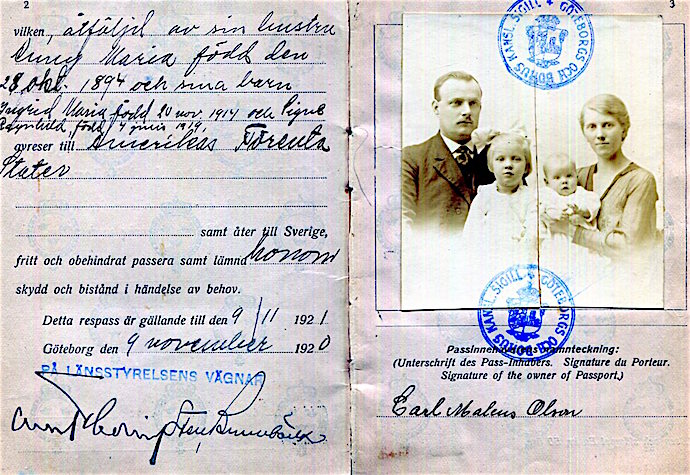 2
vilken, åtföljd av sin hustru
Maria född den
28 okt. 1894 och sina barn
Ingrid Maria född 20 nov. 1914 och Signe
Ragnhild, född 4 juni 1919,
avreser till Amerikas Förenta
Stater
samt åter till Sverige,
fritt och obehindrat passera samt lämna honom
skydd och bistånd i händelse av behov.
Detta respass är gällande till den 9/11 1921
Göteborg den 9 november 1920
PÅ LÄNSSTYRELSENS VÄGNAR
3
KANSL. SIGILL GÖTEBORGS OCH BOHUS
KANSL. SIGILL GÖTEBORGS OCH BOHUS
Passinnehavarens namnteckning:
(Unterschrift des Pass-Inhabers. Signature du Porteur.
Signature of the owner of Passport.)
Carl Olson